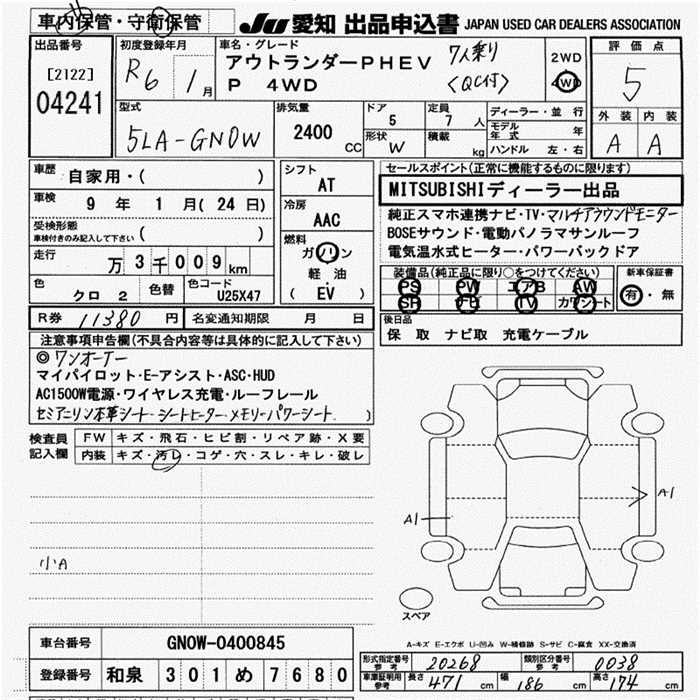 車内保管・守衛保管
JU 愛知 出品申込書 JAPAN USED CAR DEALERS ASSOCIATION
出品番号
[2122]
04241
初度登録年月
R6 1月
車名・グレード
アウトランダーPHEV 7人乗り
P 4WD 〈QC付〉
2WD
4WD
評価点
5
外装 内装
A A
型式
5LA-GN0W
排気量
2400 CC
ドア
5
定員
7 人
形状
W
積載
kg
ディーラー・並行
モデル年式 年
ハンドル 左・右
車歴
自家用・( )
車検
9 年 1 月 ( 24 日)
受検形態
車検付きのみ記入して下さい ( )
走行
万 3 千 0 0 9 km
色
クロ 2
色替
色コード
U25X47
シフト
AT
冷房
AAC
燃料
ガソリン
軽油
( EV )
セールスポイント(正常に機能するものに限ります)
MITSUBISHIディーラー出品
純正スマホ連携ナビ・TV・マルチアラウンドモニター
BOSEサウンド・電動パノラマサンルーフ
電気温水式ヒーター・パワーバックドア
装備品(純正品に限り○をつけてください)
PS PW エアB AW
SR ナビ TV カワシート
新車保証書
有・無
R券 11380 円 名変通知期限 月 日
後日品
保 取 ナビ取 充電ケーブル
注意事項申告欄(不具合内容等は具体的に記入して下さい)
◎ワンオーナー
マイパイロット・E-アシスト・ASC・HUD
AC1500W電源・ワイヤレス充電・ルーフレール
セミアニリン本革シート・シートヒーター・メモリーパワーシート
検査員記入欄
FW キズ・飛石・ヒビ割・リペア跡・X要
内装 キズ・汚レ・コゲ・穴・スレ・キレ・破レ
小A
A1
A1
スペア
A-キズ E-エクボ U-凹み W-補修跡 S-サビ C-腐食 XX-交換済
車台番号 GN0W-0400845
登録番号 和泉 301 め 7680
形式指定番号参考 20268 類別区分番号参考 0038
車庫証明用参考 長さ 471 cm 幅 186 cm 高さ 174 cm